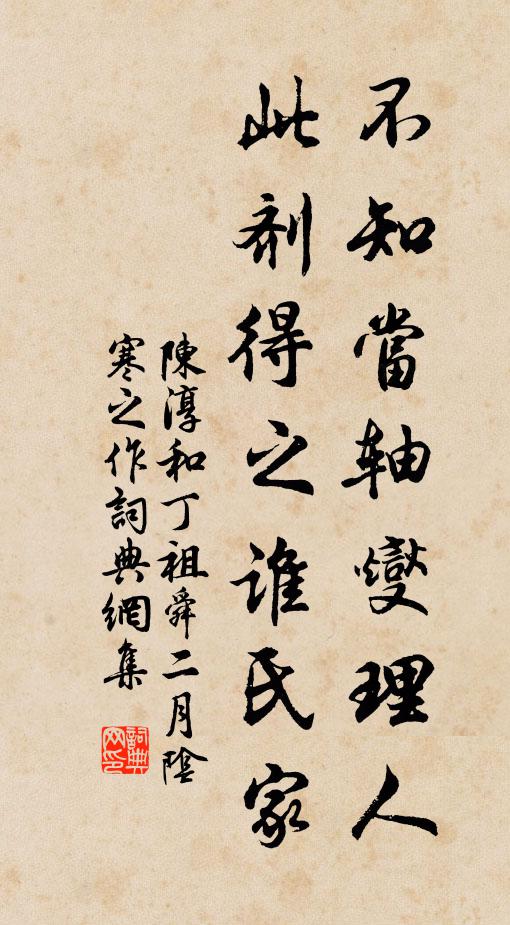 不知當軸燮理人
此剂得之誰氏家
陳淳和丁祖舜二月陰
寒之作詞典網集
詞典
网印